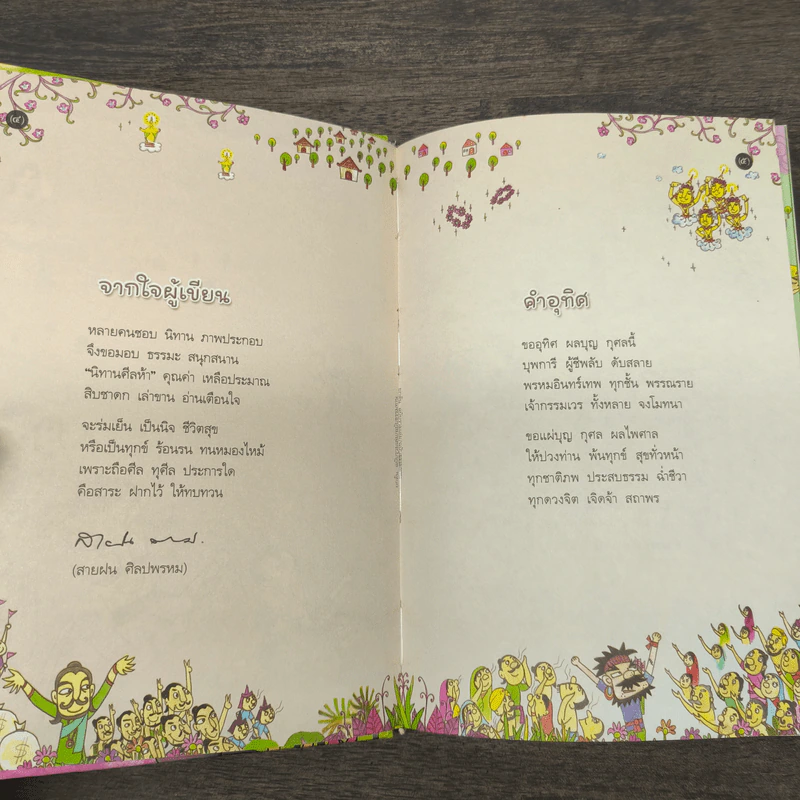 (๔)
จากใจผู้เขียน
หลายคนชอบ นิทาน ภาพประกอบ
จึงขอมอบ ธรรมะ สนุกสนาน
“นิทานศีลห้า” คุณค่า เหลือประมาณ
สิบชาดก เล่าขาน อ่านเตือนใจ
จะร่มเย็น เป็นนิจ ชีวิตสุข
หรือเป็นทุกข์ ร้อนรน ทนหมองไหม้
เพราะถือศีล ทุศีล ประการใด
คือสาระ ฝากไว้ ให้ทบทวน
(สายฝน ศิลปพรหม)
(๕)
คำอุทิศ
ขออุทิศ ผลบุญ กุศลนี้
บุพการี ผู้ชีพลับ ดับสลาย
พรหมอินทร์เทพ ทุกชั้น พรรณราย
เจ้ากรรมเวร ทั้งหลาย จงโมทนา
ขอแผ่บุญ กุศล ผลไพศาล
ให้ปวงท่าน พ้นทุกข์ สุขทั่วหน้า
ทุกชาติภพ ประสบธรรม ฉ่ำชีวา
ทุกดวงจิต เจิดจ้า สถาพร